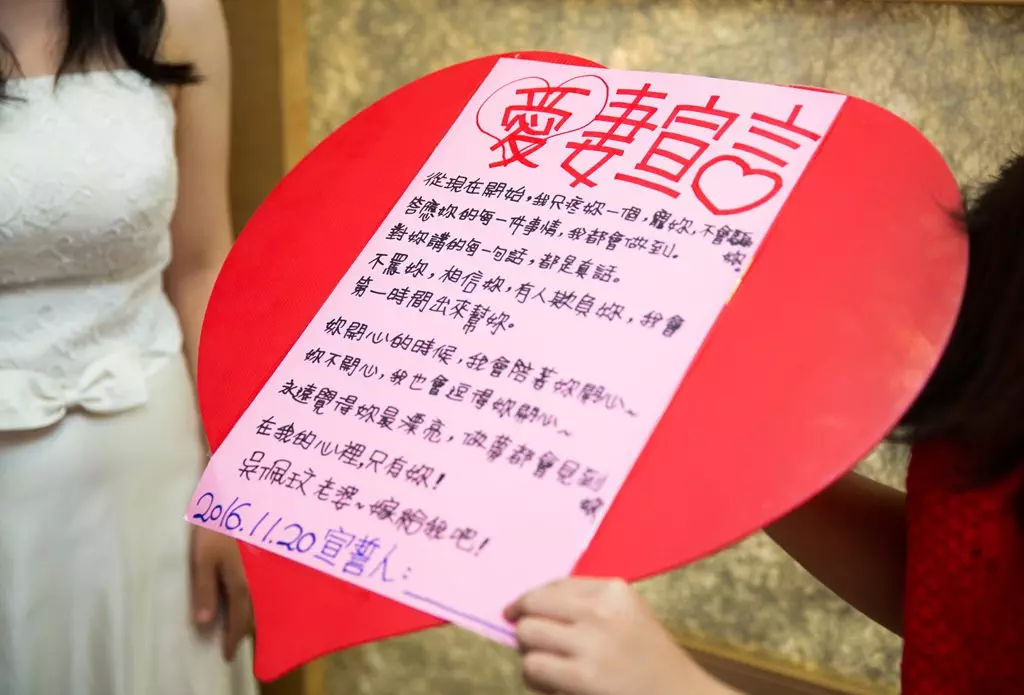 愛妻宣言
從現在開始，我只疼妳一個，寵妳，不會騙妳。
答應妳的每一件事情，我都會做到。
對妳講的每一句話，都是真話。
不罵妳，相信妳，有人欺負妳，我會
第一時間出來幫妳。
妳開心的時候，我會陪著妳開心~
妳不開心，我也會逗得妳開心~
永遠覺得妳最漂亮，做夢都會見到妳
在我的心裡，只有妳！
吳佩玟老婆~嫁給我吧！
2016.11.20 宣誓人：